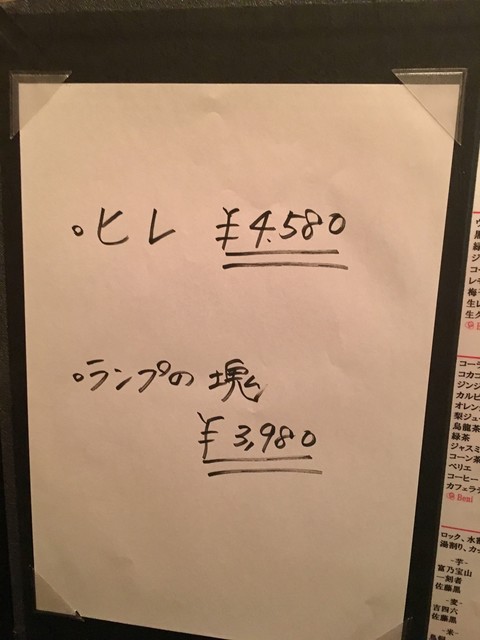 ・ヒレ ¥4,580
・ランプの塊
¥3,980
コーラ
コカコ
ジンジ
カルピ
オレン
梨ジュー
烏龍茶
緑茶
ジャスミ
コーン茶
ペリエ
コーヒー
カフェラテ
Beni
ロック、水割
湯割り、カッ
-芋-
富乃宝山
一刻者
佐藤黒
-麦-
吉四六
佐藤黒
-米-